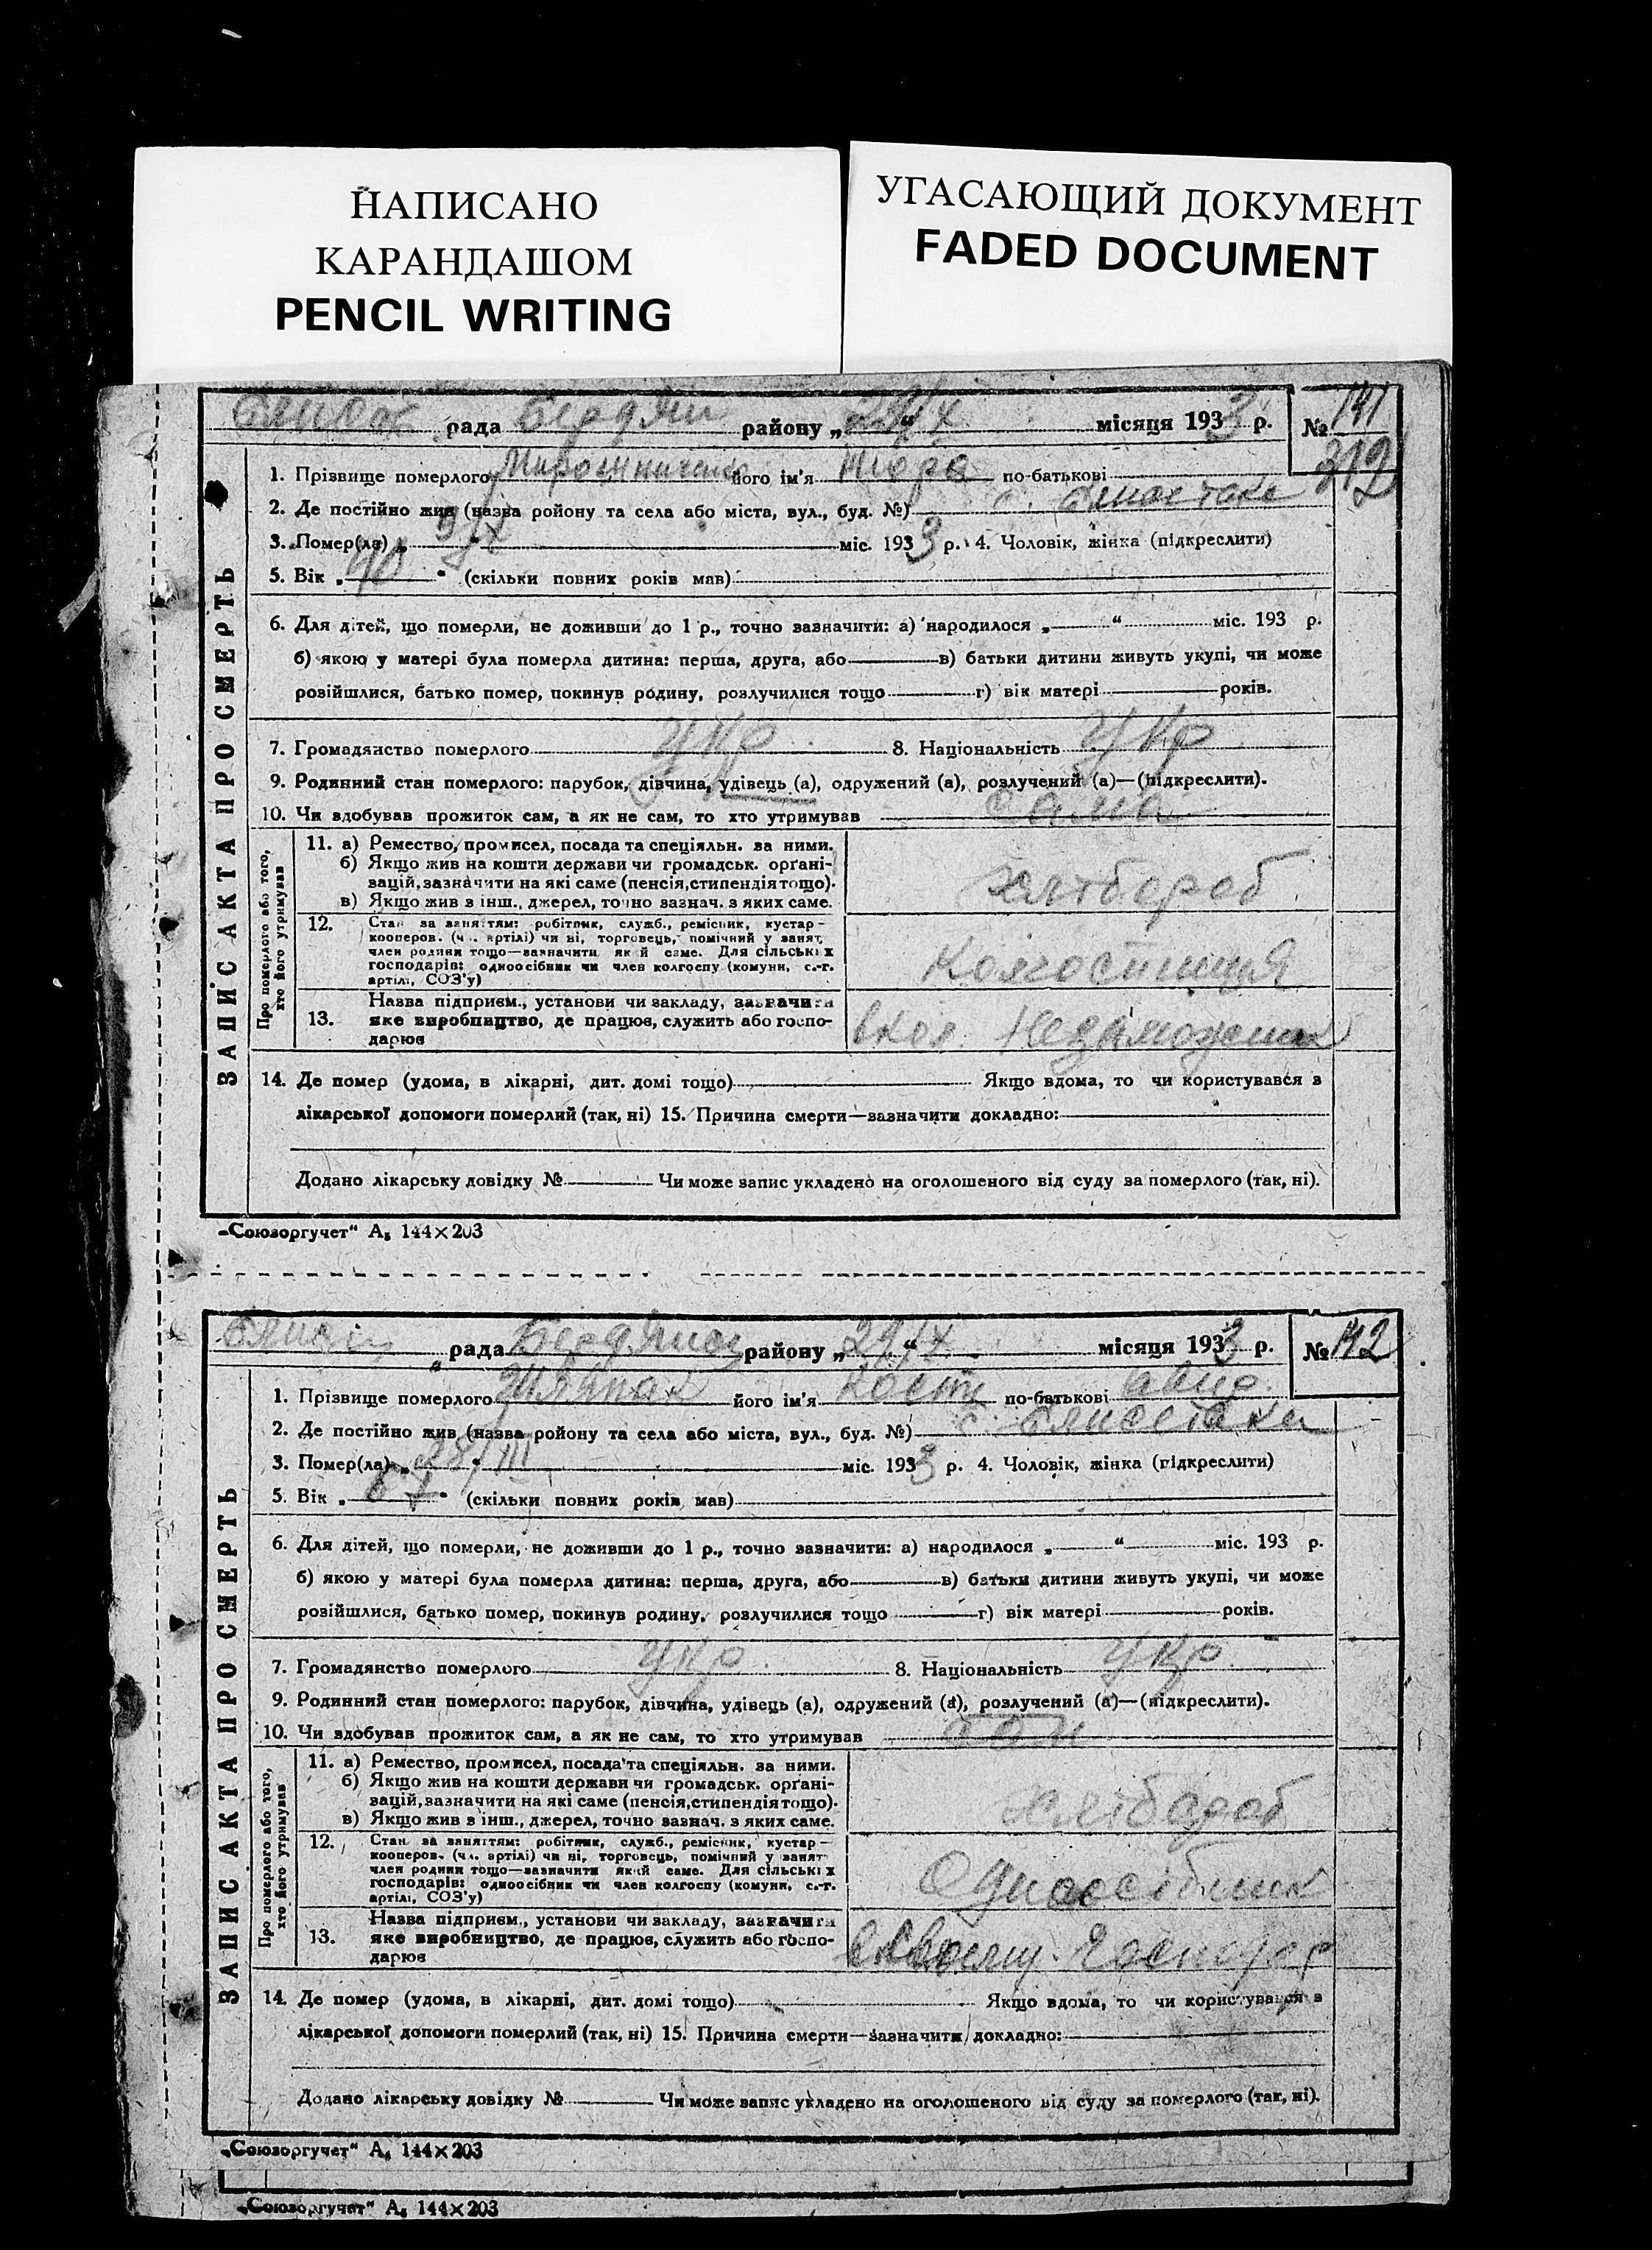 НАПИСАНО
КАРАНДАШОМ
PENCIL WRITING
УГАСАЮЩИЙ ДОКУМЕНТ
FADED DOCUMENT
рада Бердян району „29/X“ місяця 1933 р. № 141
312
1. Прізвище померлого Мирошниченко його ім'я Нюра по-батькові
2. Де постійно жив (назва ройону та села або міста, вул., буд. №) с.
3. Помер(ла) „ міс. 1933 р. 4. Чоловік, жінка (підкреслити)
5. Вік „40“ (скільки повних років мав)
6. Для дітей, що померли, не доживши до 1 р., точно зазначити: а) народилося „ “ міс. 193 р.
б) якою у матері була померла дитина: перша, друга, або в) батьки дитини живуть укупі, чи може
розійшлися, батько помер, покинув родину, розлучилися тощо г) вік матері років.
7. Громадянство померлого укр 8. Національність укр
9. Родинний стан померлого: парубок, дівчина, удівець (а), одружений (а), розлучений (а)—(підкреслити).
10. Чи здобував прожиток сам, а як не сам, то хто утримував сама
ЗАПИС АКТА ПРО СМЕРТЬ
Про померлого або того, хто його утримував
11. а) Ремество, промисел, посада та спеціяльн. за ними.
б) Якщо жив на кошти держави чи громадськ. орґані-
зацій, зазначити на які саме (пенсія, стипендія тощо).
в) Якщо жив з інш., джерел, точно зазнач. з яких саме.
хлібороб
12. Стан за заняттям: робітник, служб., ремісник, кустар—
кооперов. (чл. артілі) чи ні, торговець, помічний у занят.
член родини тощо—зазначити який саме. Для сільських
господарів: одноосібник чи член колгоспу (комуни, с.-г.
артілі, СОЗ'у)
Колгоспниця
13. Назва підприєм., установи чи закладу, зазначити
яке виробництво, де працює, служить або госпо-
дарює
в кол. Незаможник
14. Де помер (удома, в лікарні, дит. домі тощо) Якщо вдома, то чи користувався з
лікарської допомоги померлий (так, ні) 15. Причина смерти—зазначити докладно:
Додано лікарську довідку № Чи може запис укладено на оголошеного від суду за померлого (так, ні).
„Союзоргучет“ А₅ 144×203
рада Бердянськ району „29/X“ місяця 1933 р. № 142
1. Прізвище померлого його ім'я Кость по-батькові
2. Де постійно жив (назва ройону та села або міста, вул., буд. №) с. Єлисеївка
3. Помер(ла) „28/III“ міс. 1933 р. 4. Чоловік, жінка (підкреслити)
5. Вік „ “ (скільки повних років мав)
6. Для дітей, що померли, не доживши до 1 р., точно зазначити: а) народилося „ “ міс. 193 р.
б) якою у матері була померла дитина: перша, друга, або в) батьки дитини живуть укупі, чи може
розійшлися, батько помер, покинув родину, розлучилися тощо г) вік матері років.
7. Громадянство померлого укр. 8. Національність укр.
9. Родинний стан померлого: парубок, дівчина, удівець (а), одружений (а), розлучений (а)—(підкреслити).
10. Чи здобував прожиток сам, а як не сам, то хто утримував сам
ЗАПИС АКТА ПРО СМЕРТЬ
Про померлого або того, хто його утримував
11. а) Ремество, промисел, посада та спеціяльн. за ними.
б) Якщо жив на кошти держави чи громадськ. орґані-
зацій, зазначити на які саме (пенсія, стипендія тощо).
в) Якщо жив з інш., джерел, точно зазнач. з яких саме.
хлібороб
12. Стан за заняттям: робітник, служб., ремісник, кустар—
кооперов. (чл. артілі) чи ні, торговець, помічний у занят.
член родини тощо—зазначити який саме. Для сільських
господарів: одноосібник чи член колгоспу (комуни, с.-г.
артілі, СОЗ'у)
Одноосібник
13. Назва підприєм., установи чи закладу, зазначити
яке виробництво, де працює, служить або госпо-
дарює
в своему господар
14. Де помер (удома, в лікарні, дит. домі тощо) Якщо вдома, то чи користувався з
лікарської допомоги померлий (так, ні) 15. Причина смерти—зазначити докладно:
Додано лікарську довідку № Чи може запис укладено на оголошеного від суду за померлого (так, ні).
„Союзоргучет“ А₅ 144×203
„Союзоргучет“ А₅ 144×203